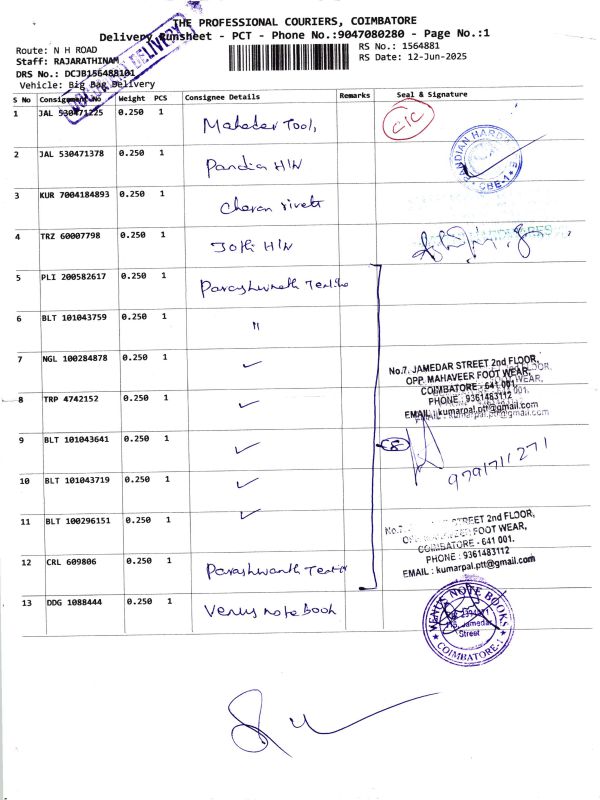 THE PROFESSIONAL COURIERS, COIMBATORE
Delivery Runsheet - PCT - Phone No.:9047080280 - Page No.:1
Route: N H ROAD
RS No.: 1564881
Staff: RAJARATHINAM
RS Date: 12-Jun-2025
DRS No.: DCJB156488101
Vehicle: Big Bag Delivery
S No Consignment No Weight PCS Consignee Details Remarks Seal & Signature
1 JAL 530471225 0.250 1 Mahadev Tool, CIC
2 JAL 530471378 0.250 1 Pandian H/W
PANDIAN HARDWARE
CBE-1
3 KUR 7004184893 0.250 1 Charan rivets
4 TRZ 60007798 0.250 1 Jothi H/W
5 PLI 200582617 0.250 1 Parashwnath Textile
6 BLT 101043759 0.250 1 "
7 NGL 100284878 0.250 1 ✓
No.7. JAMEDAR STREET 2nd FLOOR,
OPP. MAHAVEER FOOT WEAR,
COIMBATORE - 641 001.
PHONE : 9361483112
EMAIL : kumarpal.ptt@gmail.com
8 TRP 4742152 0.250 1 ✓
9 BLT 101043641 0.250 1 ✓
8
10 BLT 101043719 0.250 1 ✓
9791711271
11 BLT 100296151 0.250 1 ✓
No.7. STREET 2nd FLOOR,
FOOT WEAR,
COIMBATORE - 641 001.
PHONE : 9361483112
EMAIL : kumarpal.ptt@gmail.com
12 CRL 609806 0.250 1 Parashwanth Textile
13 DDG 1088444 0.250 1 Venus note Book
VENUS NOTE BOOKS
Jamedar
Street
COIMBATORE-1